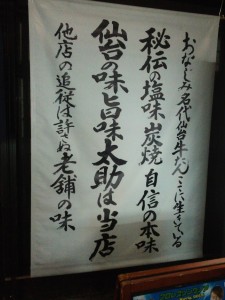 おなじみ名代仙台牛たんここに生きている
秘伝の塩味炭焼自信の本味
仙台の味旨味太助は当店
他店の追従は許さぬ老舗の味